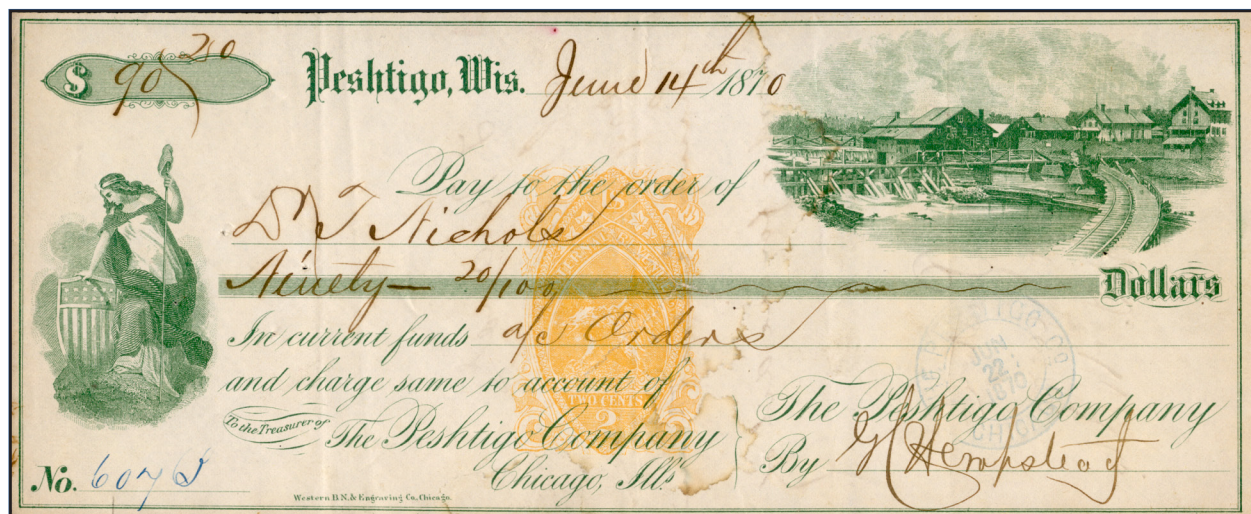 $ 90 20
Peshtigo, Wis. June 14th 1870
Pay to the order of
D T Nichols
Ninety — 20/100 Dollars
In current funds a/c Orders
and charge same to account of
To the Treasurer of The Peshtigo Company
Chicago, Ills.
The Peshtigo Company
By G C Hempstead
No. 6072
Western B.N. & Engraving Co. Chicago.
INTERNAL REVENUE
TWO CENTS
2